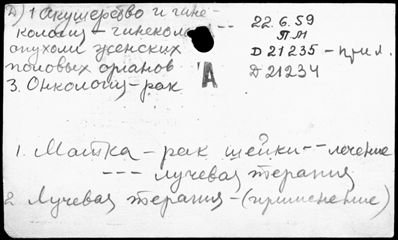 Д) 1 Акушерство и гине-
кология - гинеколог --
опухоли женских
половых органов
3. Онкология - рак
22.6.59
ПМ
Д 21235 - прил.
Д 21234
А
1. Матка - рак шейки -- лечение
--- лучевая терапия
2. Лучевая терапия - (применение)